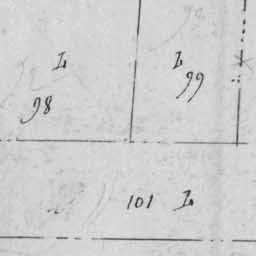 L L
98 99
101 L